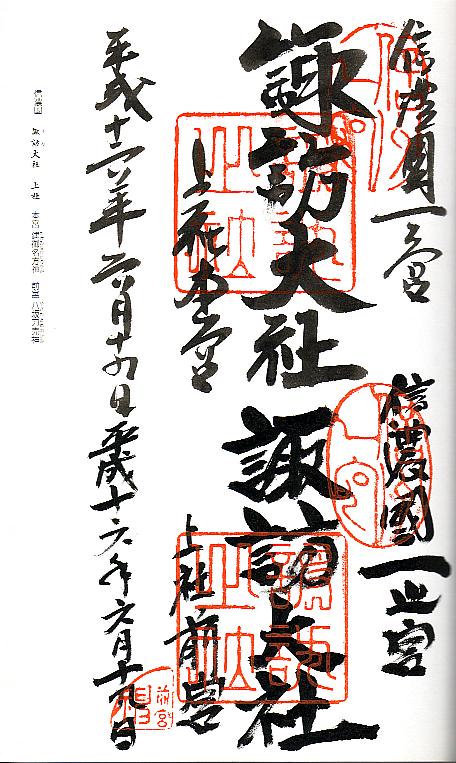 信濃國一之宮
諏訪大社
上社本宮
平成十六年六月十九日
信濃國一之宮
諏訪大社
上社前宮
平成十六年六月十九日
信濃国 諏訪大社 上社 本宮 建御名方神 前宮 八坂刀売神